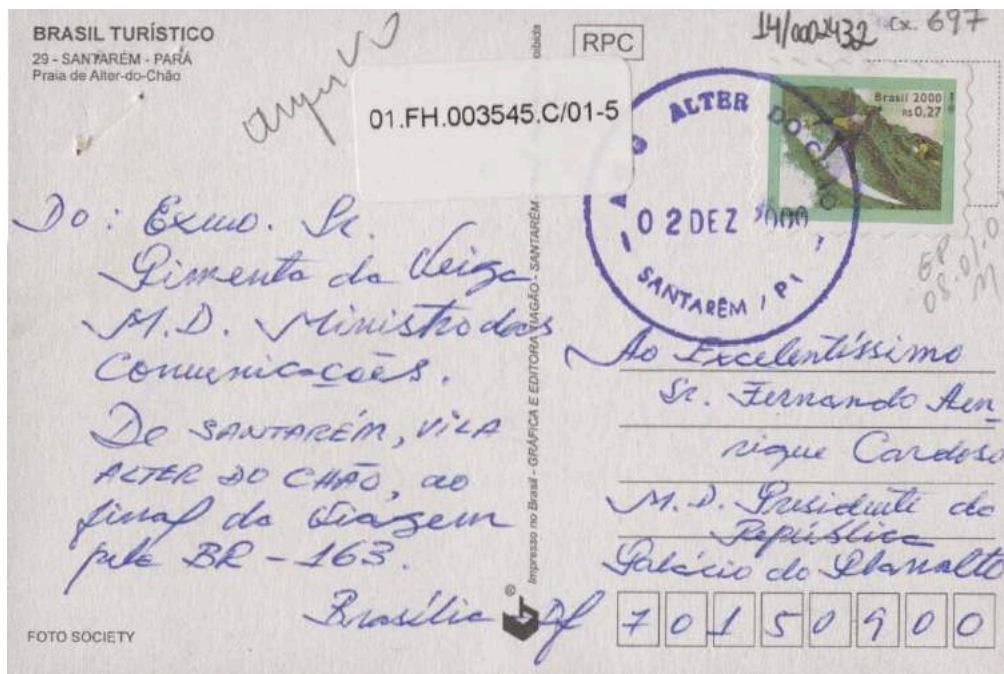 BRASIL TURÍSTICO
29 - SANTARÉM - PARÁ
Praia de Alter-do-Chão
arquivo
01.FH.003545.C/01-5
RPC
14/0002432 Ex. 697
Brasil 2000
R$ 0,27
ALTER DO CHÃO
02 DEZ 2000
SANTARÉM / P
EP
08.01.0
Do: Exmo. Sr.
Pimenta da Veiga
M.D. Ministro das
Comunicações.
De SANTARÉM, VILA
ALTER DO CHÃO, ao
final da viagem
pela BR-163.
Impresso no Brasil - GRÁFICA E EDITORA VIAGÃO - SANTARÉM
Ao Excelentíssimo
Sr. Fernando Hen
rique Cardoso
M.D. Presidente da
República
Palácio do Planalto
Brasília Df
70150900
FOTO SOCIETY